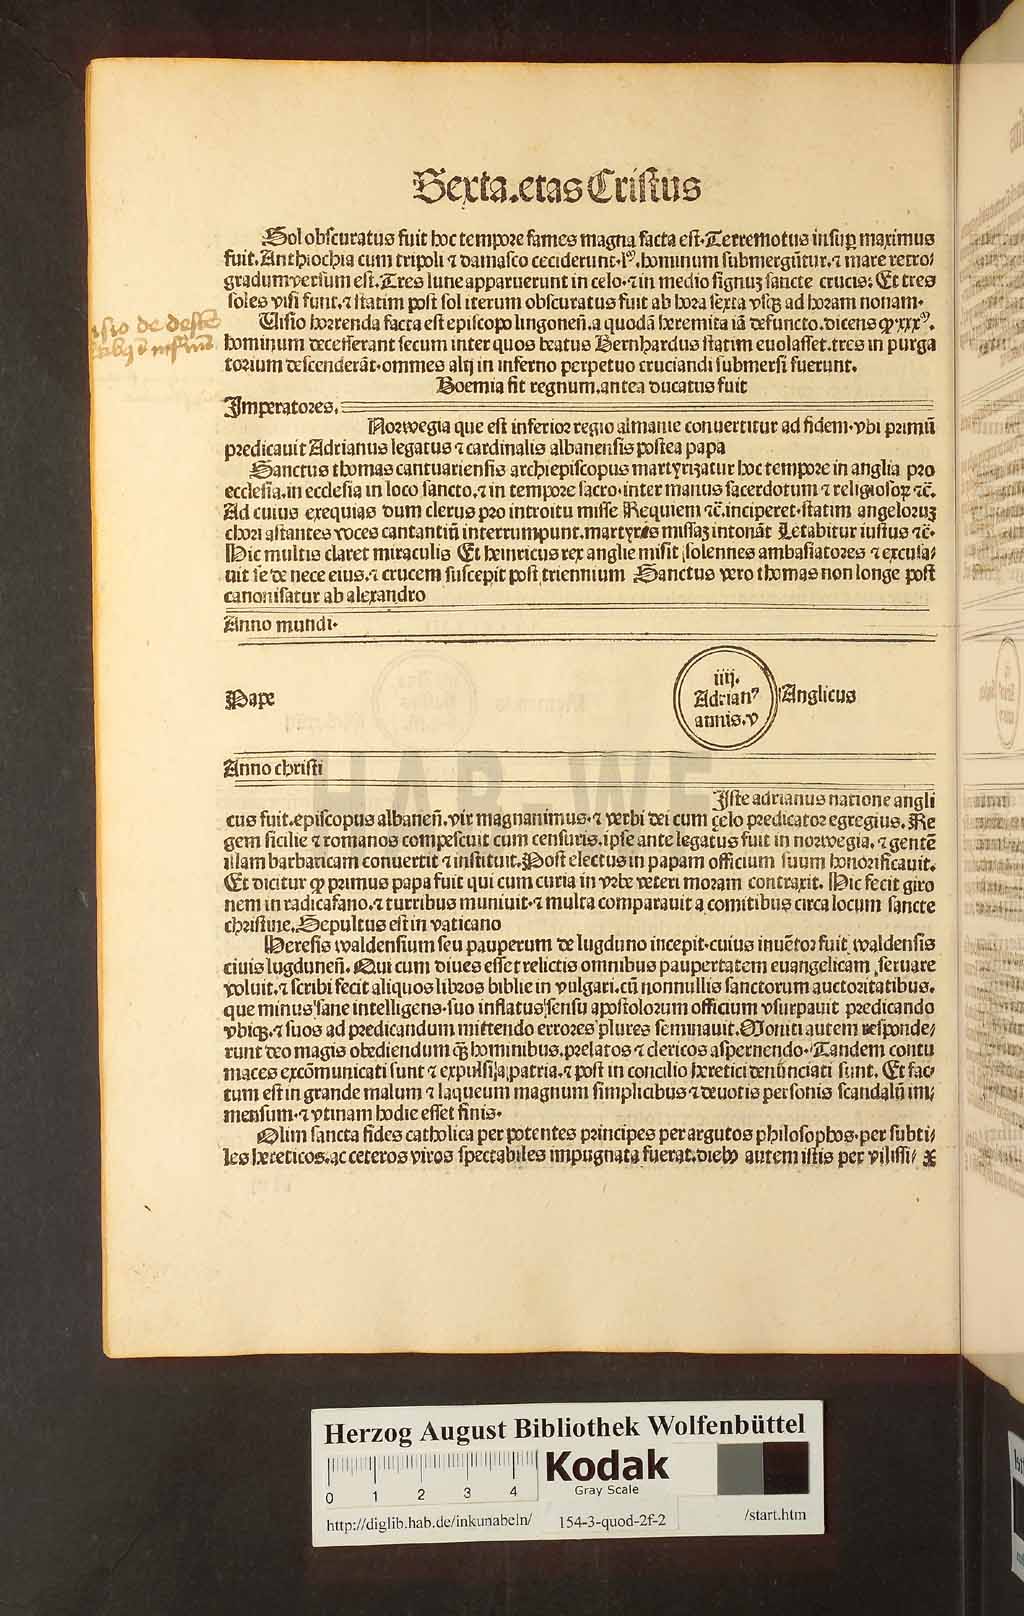 Sexta.etas Cristus
Sol obscuratus fuit hoc tempore fames magna facta est. Terremotus insuꝑ maximus
fuit. Anthiochia cum tripoli ⁊ damasco ceciderunt. hominum submergūtur. ⁊ mare retro⸗
gradum versum est. Tres lune apparuerunt in celo. ⁊ in medio signuꝫ sancte crucis. Et tres
soles visi sunt. ⁊ statim post sol iterum obscuratus fuit ab hora sexta vsqꝫ ad horam nonam.
Uisio horrenda facta est episcopo lingonen̄. a quodā heremita iā defuncto. dicens ꝙ xxxᵐ.
hominum decesserant secum inter quos beatus Bernhardus statim euolasset. tres in purga
torium descenderāt. ommes alij in inferno perpetuo cruciandi submersi fuerunt.
Boemia fit regnum. antea ducatus fuit
Imperatores.
Norwegia que est inferior regio almanie conuertitur ad fidem. vbi primū
predicauit Adrianus legatus ⁊ cardinalis albanensis postea papa
Sanctus thomas cantuariensis archiepiscopus martyrizatur hoc tempore in anglia pro
ecclesia. in ecclesia in loco sancto. ⁊ in tempore sacro. inter manus sacerdotum ⁊ religiosoꝝ ⁊c̄.
Ad cuius exequias dum clerus pro introitu misse Requiem ⁊c̄. inciperet. statim angeloruꝫ
chori astantes voces cantantiū interrumpunt. martyris missaꝫ intonāt Letabitur iustus ⁊c̄.
Hic multis claret miraculis Et heinricus rex anglie misit solennes ambasiatores ⁊ excusa⸗
uit se de nece eius. ⁊ crucem suscepit post triennium Sanctus vero thomas non longe post
canonisatur ab alexandro
Anno mundi.
Pape
iiij.
Adrianꝰ
annis. v
Anglicus
Anno christi
Iste adrianus natione angli
cus fuit. episcopus albanen̄. vir magnanimus. ⁊ verbi dei cum celo predicator egregius. Re
gem sicilie ⁊ romanos compescuit cum censuris. ipse ante legatus fuit in norwegia. ⁊ gentē
illam barbaricam conuertit ⁊ instituit. Post electus in papam officium suum honorificauit.
Et dicitur ꝙ primus papa fuit qui cum curia in vrbe veteri moram contraxit. Hic fecit giro
nem in radicafano. ⁊ turribus muniuit. ⁊ multa comparauit a comitibus circa locum sancte
christine. Sepultus est in vaticano
Heresis waldensium seu pauperum de lugduno incepit. cuius inuētor fuit waldensis
ciuis lugdunen̄. Qui cum diues esset relictis omnibus paupertatem euangelicam seruare
voluit. ⁊ scribi fecit aliquos libros biblie in vulgari. cū nonnullis sanctorum auctoritatibus.
que minus sane intelligens. suo inflatus sensu apostolorum officium vsurpauit predicando
vbiqꝫ. ⁊ suos ad predicandum mittendo errores plures seminauit. Moniti autem responde⸗
runt deo magis obediendum qꝫ̄ hominibus. prelatos ⁊ clericos aspernendo. Tandem contu
maces excōmunicati sunt ⁊ expulsi a patria. ⁊ post in concilio heretici denūnciati sunt. Et fac⸗
tum est in grande malum ⁊ laqueum magnum simplicibus ⁊ deuotis personis scandalū im⸗
mensum. ⁊ vtinam hodie esset finis.
Olim sancta fides catholica per potentes principes per argutos philosophos. per subti⸗
les hereticos. ac ceteros viros spectabiles impugnata fuerat. diebꝫ autem istis per vilissi⸗ x
Herzog August Bibliothek Wolfenbüttel
0 1 2 3 4
Kodak
Gray Scale
http://diglib.hab.de/inkunabeln/ 154-3-quod-2f-2 /start.htm
HAB-WF